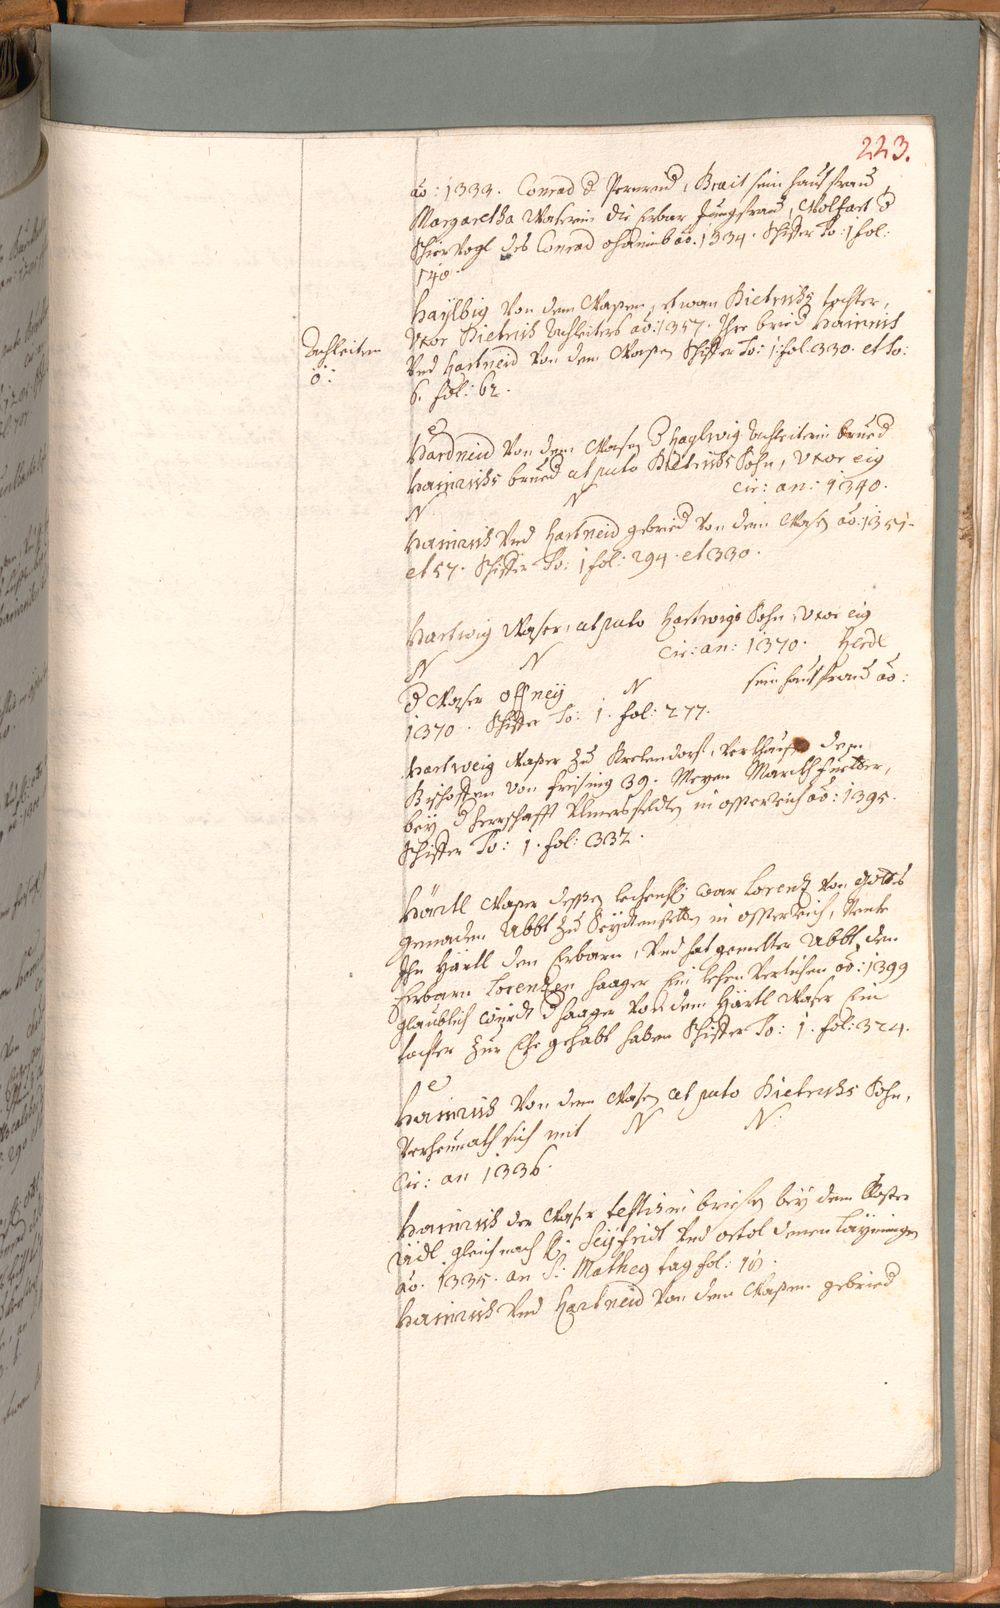 223.
ao: 1333. Conrad d Pernrud, Brait sein hausfrau,
Margaretha Waserin die Erbar Jungfrau, Wolfart d
Schier Vogl des Conrad ohaimb ao. 1334. Schiffer To: 1 fol:
140.
Haylbig von dem Wasen, etwan Dietrichs tochter,
Uxor Dietrich Achleiters ao: 1357. Ihre brüed Hainrich
Achleiten
ö:
Und Hartneid von dem Wasen Schiffer To: 1. fol. 330. et To:
6. fol: 62.
Hardneid von dem Wasen d Haylwig Achleiterin brued
Hainrichs brued at puto Dietrichs Sohn, Uxor eig
N N cir: an: 1340.
Hainrich Und Hartneid gebried von dem Wasen ao: 1351.
et 57. Schiffer To: 1 fol: 294. et 330.
Hartwig Waser, at puto Hartwigs Sohn, Uxor eig
N N cir: an: 1370. Herdl
d Waser offney N sein hausfraud ao:
1370. Schiffer To: 1. fol: 277.
Hartweig Waser zu Krelendorf, verkhauft dem
Bischoffen von freising 39. Mezen Marckh fuetter,
bey d herrschafft Ulmersfeldten in osterreich ao: 1395.
Schiffer To: 1. fol: 332.
Härtl Waser dessen lechensh: war Lorenz von Gottes
genaden Abbt zu Seyttenstetten in osterreich, nente
Ihn Härtl den Erbarn, Und hat gemelter Abbt dem
Erbarn Lorenzen Haager Ein lehen verlichen ao: 1399
glaublich würdt d Haager von dem Härtl Waser Ein
tochter zur Ehe gehabt haben Schiffer To: 1. fol: 324.
Hainrich von dem Wasen at puto Dietrichs Sohn,
verheurath sich mit N N.
Cir: an 1336.
Hainrich der Waser testis in briefen bey dem Closter
gleich nach H: Seyfridt Und ortol denen Layminger
ao. 1335. an S: Matheg tag fol: 10.
Hainrich Und Hartneid von dem Wasen gebried